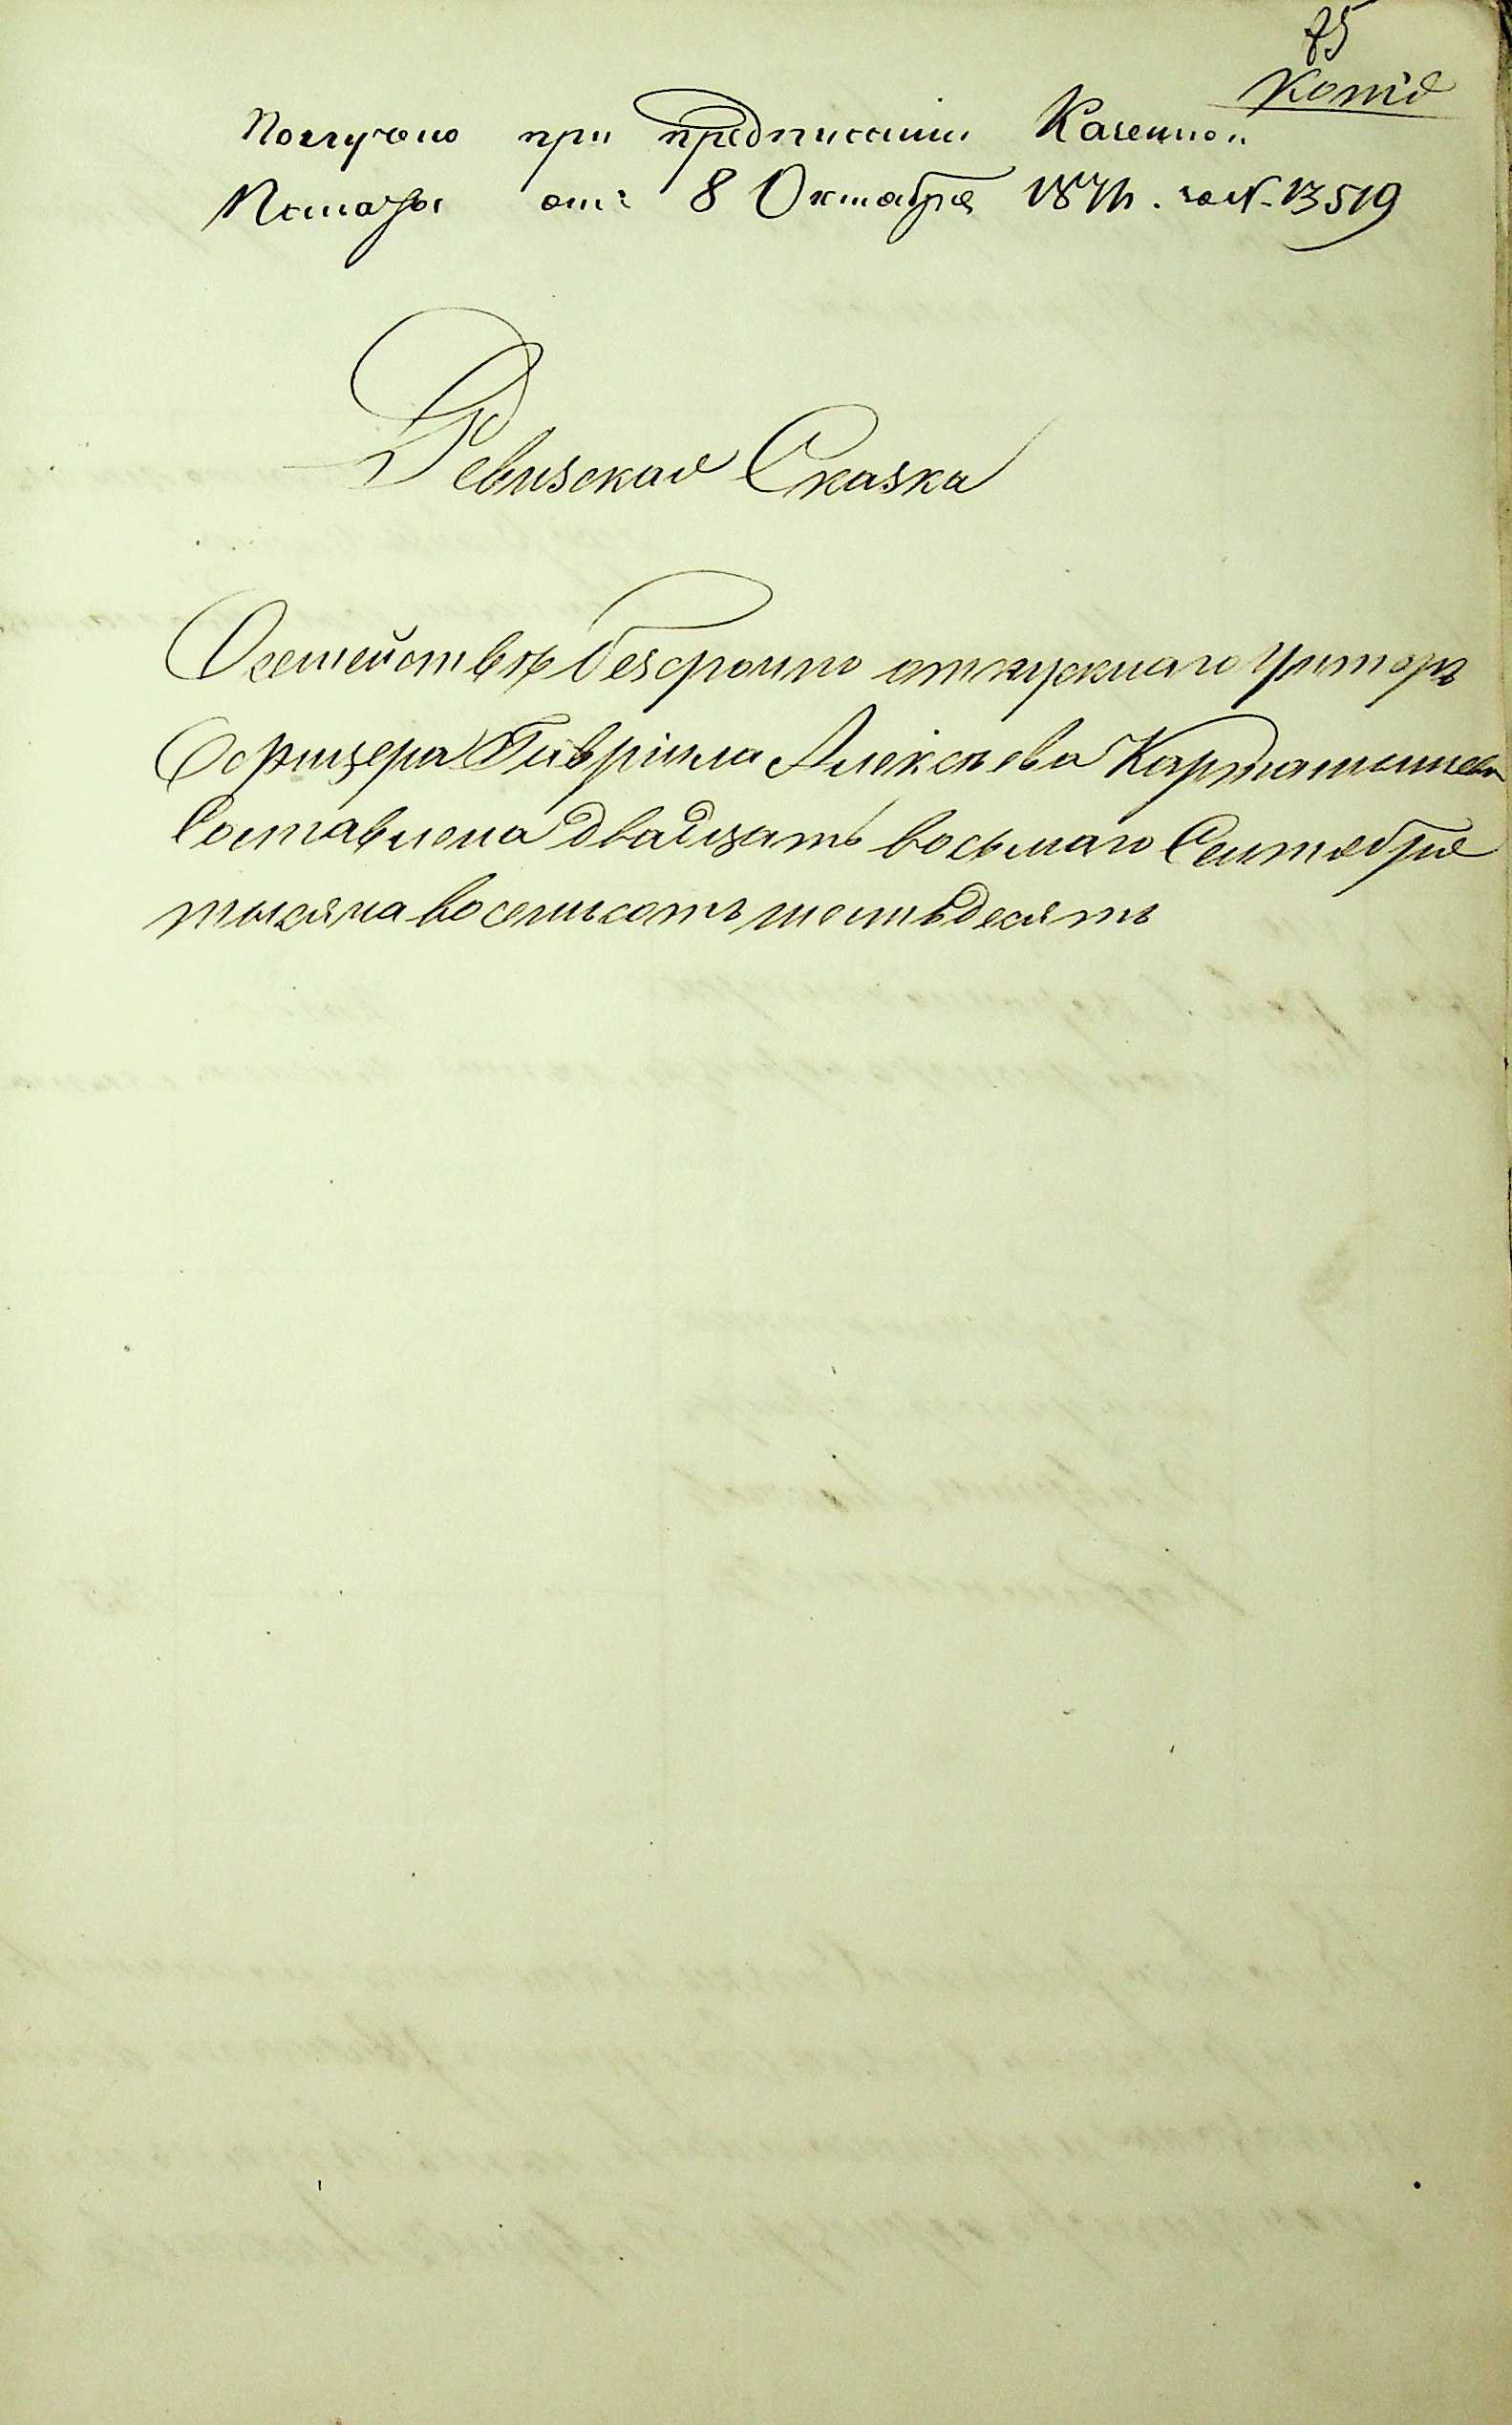 75
Копія
Получено при предписаніи Казенной
Палаты отъ 8 Октября за N. 13519
Ревизская Сказка
О семействѣ безсрочно отпускнаго Унтеръ
Офицера Гавріила Алексѣева
Составлена двадцать восьмаго Сентября
тысяча восемьсотъ шестьдесятъ